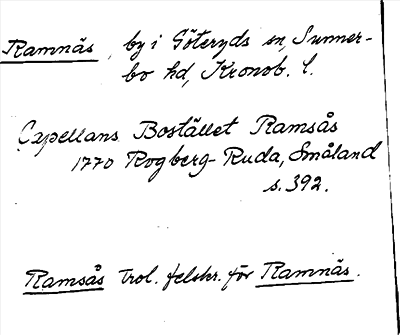 Ramnäs, by i Göteryds sn, Sunner-
bo hd, Kronob. l.
Capellans Bostället Ramsås
1770 Rogberg-Ruda, Småland
s. 392.
Ramsås trol. felskr. för Ramnäs.